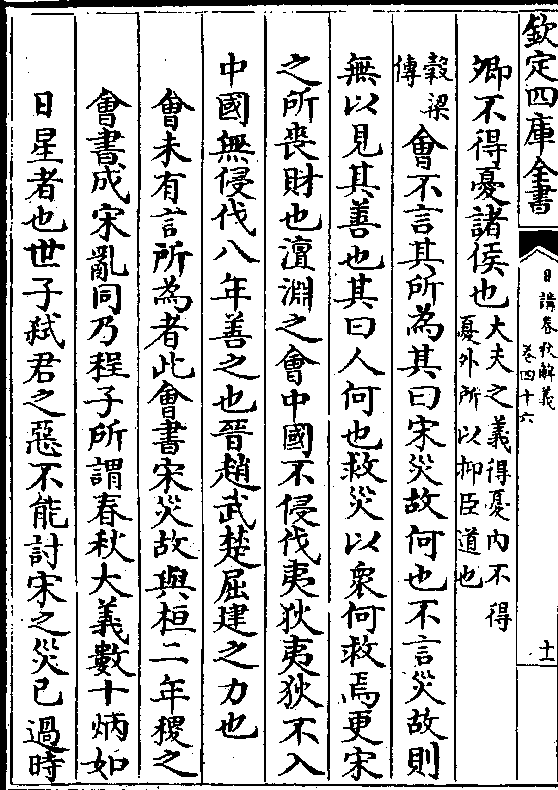 欽定四庫全書
日講春秋解義
卷四十六
十一
卿不得憂諸侯也大夫之義得憂內不得
憂外所以抑臣道也
穀梁
傳
會不言其所為其曰宋災故何也不言災故則
無以見其善也其曰人何也救災以衆何救焉更宋
之所喪財也澶淵之會中國不侵伐夷狄夷狄不入
中國無侵伐八年善之也晉趙武楚屈建之力也
會未有言所為者此會書宋災故與桓二年稷之
會書成宋亂同乃程子所謂春秋大義數十炳如
日星者也世子弑君之惡不能討宋之災已過時